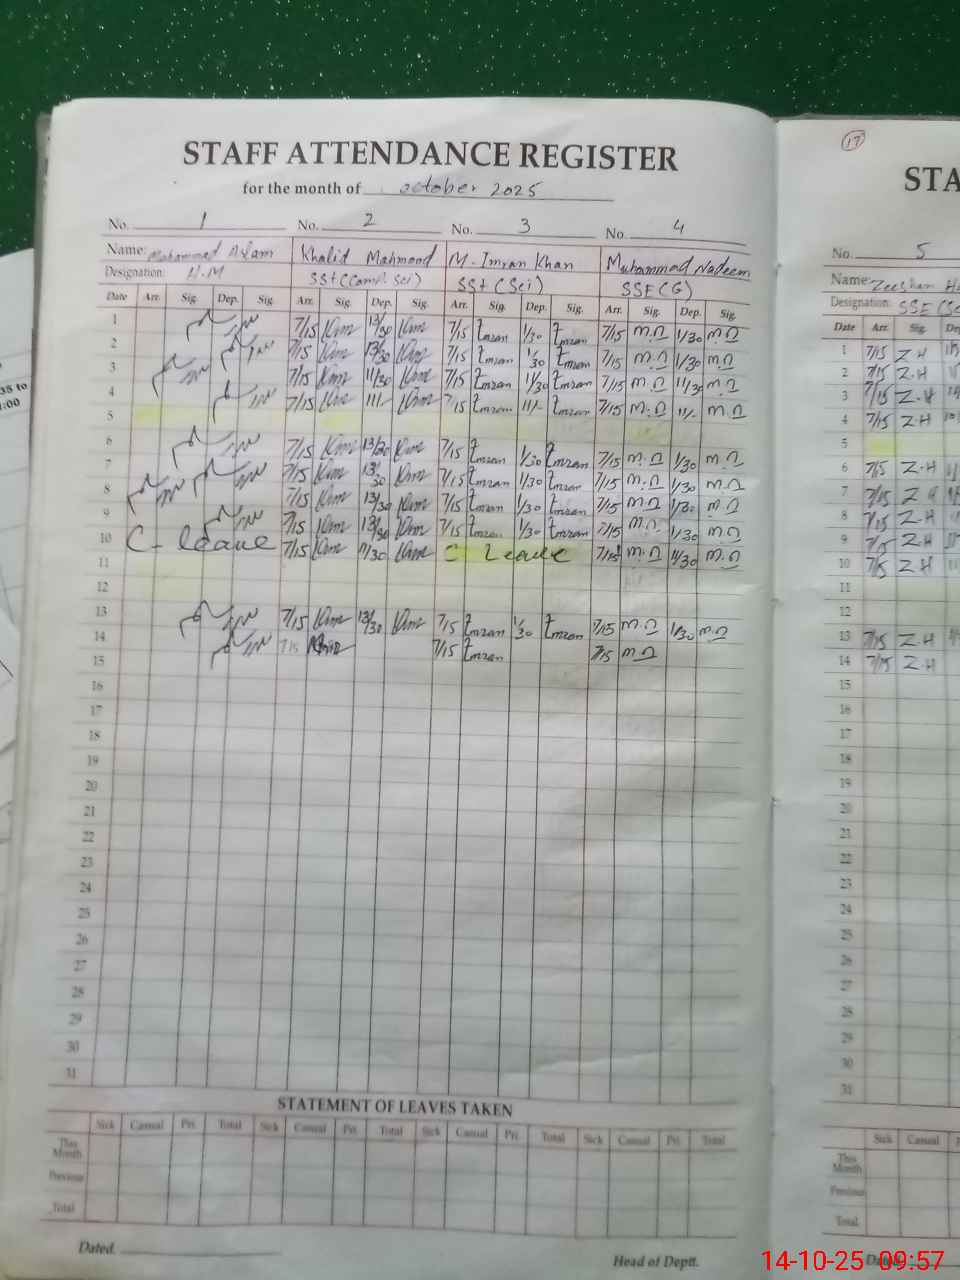 STAFF ATTENDANCE REGISTER
for the month of October 2025
No. 1 No. 2 No. 3 No. 4
Name: Mohammad Aslam Khalid Mahmood M. Imran Khan Muhammad Nadeem
Designation: H.M SSt (Comp. Sci) SSt (Sci) SSE (G)
Date Arr. Sig. Dep. Sig. Arr. Sig. Dep. Sig. Arr. Sig. Dep. Sig. Arr. Sig. Dep. Sig.
1 7/15 Km 13/30 Km 7/15 Imran 1/30 Imran 7/15 M.N 1/30 M.N
2 7/15 Km 13/30 Km 7/15 Imran 1/30 Imran 7/15 M.N 1/30 M.N
3 7/15 Km 11/30 Km 7/15 Imran 11/30 Imran 7/15 M.N 11/30 M.N
4 7/15 Km 11/- Km 7/15 Imran 11/- Imran 7/15 M.N 11/- M.N
5
6 7/15 Km 13/30 Km 7/15 Imran 1/30 Imran 7/15 M.N 1/30 M.N
7 7/15 Km 13/30 Km 7/15 Imran 1/30 Imran 7/15 M.N 1/30 M.N
8 7/15 Km 13/30 Km 7/15 Imran 1/30 Imran 7/15 M.N 1/30 M.N
9 7/15 Km 13/30 Km 7/15 Imran 1/30 Imran 7/15 M.N 1/30 M.N
10 C- leave 7/15 Km 11/30 Km C Leave 7/15 M.N 11/30 M.N
11
12
13 7/15 Km 13/30 Km 7/15 Imran 1/30 Imran 7/15 M.N 1/30 M.N
14 7/15 Km 7/15 Imran 7/15 M.N
15
16
17
18
19
20
21
22
23
24
25
26
27
28
29
30
31
STATEMENT OF LEAVES TAKEN
Sick Casual Pri. Total Sick Casual Pri. Total Sick Casual Pri. Total Sick Casual Pri. Total
This Month
Previous
Total
Dated. Head of Deptt.
17
STA
No. 5
Name: Zeeshan
Designation: SSE
Date Arr. Sig.
1 7/15 Z.H
2 7/15 Z.H
3 7/15 Z.H
4 7/15 Z.H
5
6 7/15 Z.H
7 7/15 Z.H
8 7/15 Z.H
9 7/15 Z.H
10 7/15 Z.H
11
12
13 7/15 Z.H
14 7/15 Z.H
15
16
17
18
19
20
21
22
23
24
25
26
27
28
29
30
31
Sick Casual
This Month
Previous
Total
Dated.
35 to
:00
14-10-25 09:57